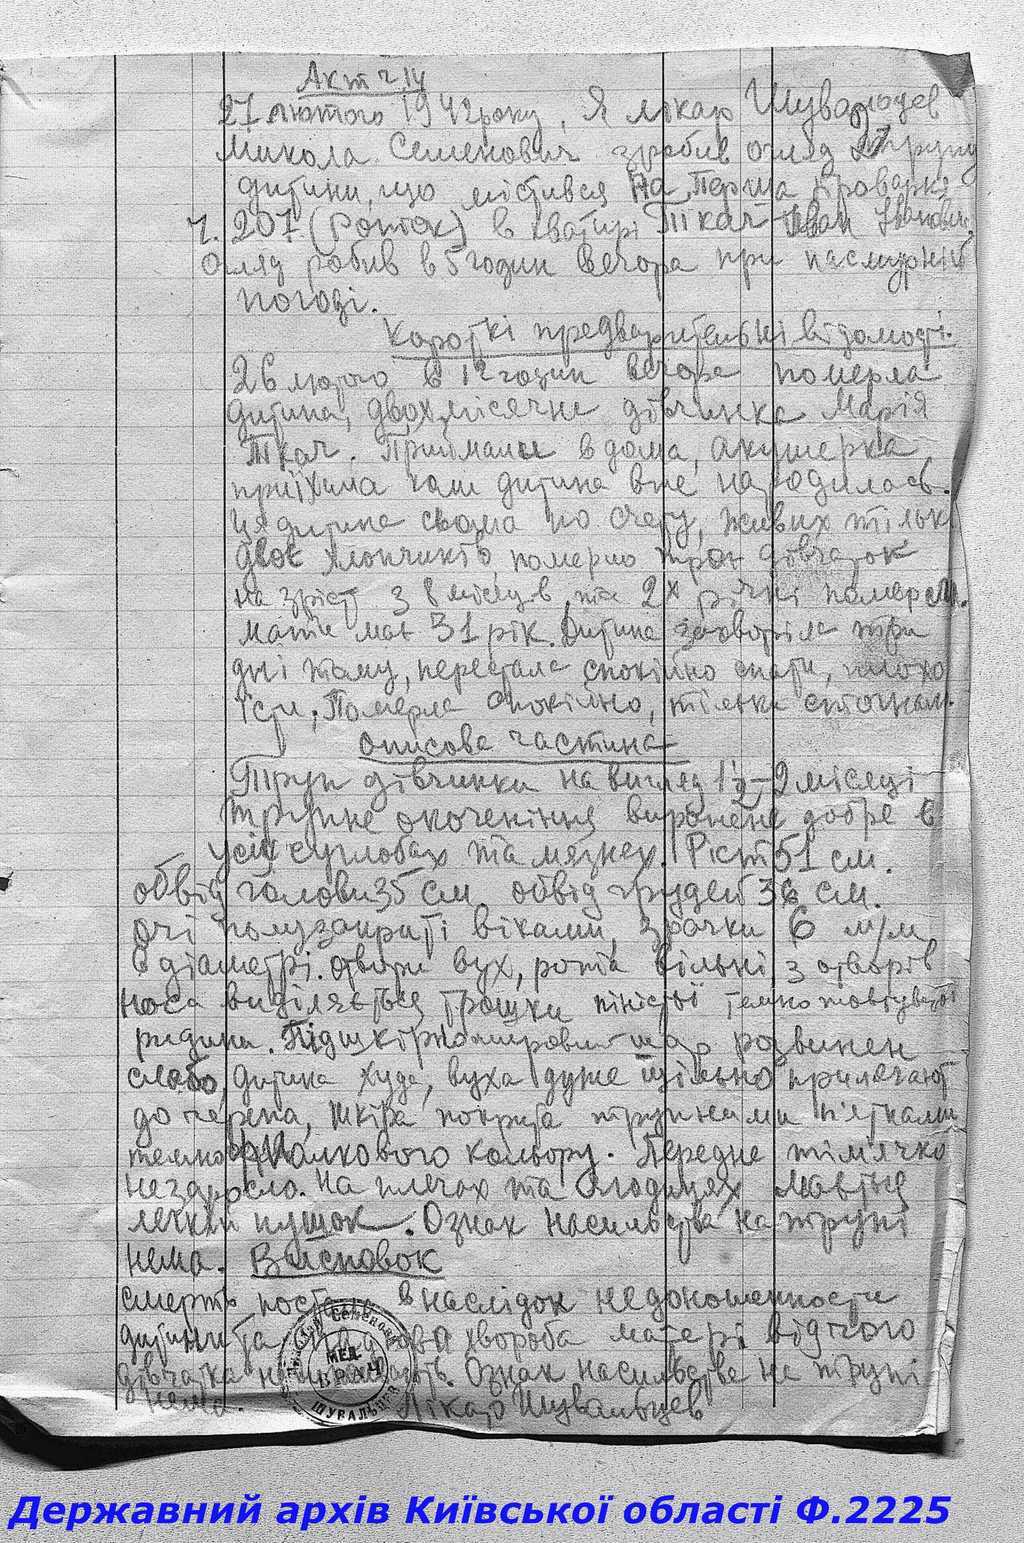 Акт ч. 14
27 лютого 1942 року, Я лікар Шувальцев
Микола Семенович зробив огляд трупу
дитини, що містився на Перша
ч. 207 (Ропток) в квартирі Ткач Іван Іванович.
Огляд робив в 5 годин вечора при пасмурній
погоді.
Короткі предварительні відомості.
26 лютого в 12 годин вечора померла
дитина, двохмісячна дівчинка Марія
Ткач. Приймали в дома, акушерка
приїхала коли дитина вже народилась.
Ця дитина сьома по счету, живих тільк
двоє хлопчиків померло троє дівчаток
на зріст з 8 місяців та 2х річні померли.
Мати має 31 рік. Дитина захворіла три
дні тому, перестала спокійно спати, плохо
їсти, Померла спокійно, тілька стогнала.
Описова частина
Труп дівчинки на вигляд 1½-2 місяці
трупне окоченіння виражене добре в
усіх суглобах та мязнех. Ріст 51 см.
обвід голови 35 см. обвід грудей 36 см.
очі полузакриті віками, зрачки 6 м/м
в діаметрі. отвори вух, рота вільні, з отворів
носа виділяється трошки піністої темножовтуватої
ридини. Підшкірножировий шар розвинен
слабо, дитина худа, вуха дуже щільно прилягают
до черепа, шкіра покрита трупними п'ятнами
темнофіалкового кольору. Переднє тім'ячко
незаросло. На плечах та ягодицях мається
легкий пушок. Ознак насильства на трупі
нема. Висновок
смерть внаслідок недоношенности
дитини та хвороба матері від чого
дівчатка Ознак насильства на трупі
нема. Лікар Шувальцев
Семенович
МЕД.
ВРАЧ
ШУВАЛЬЦЕВ
Державний архів Київської області Ф.2225